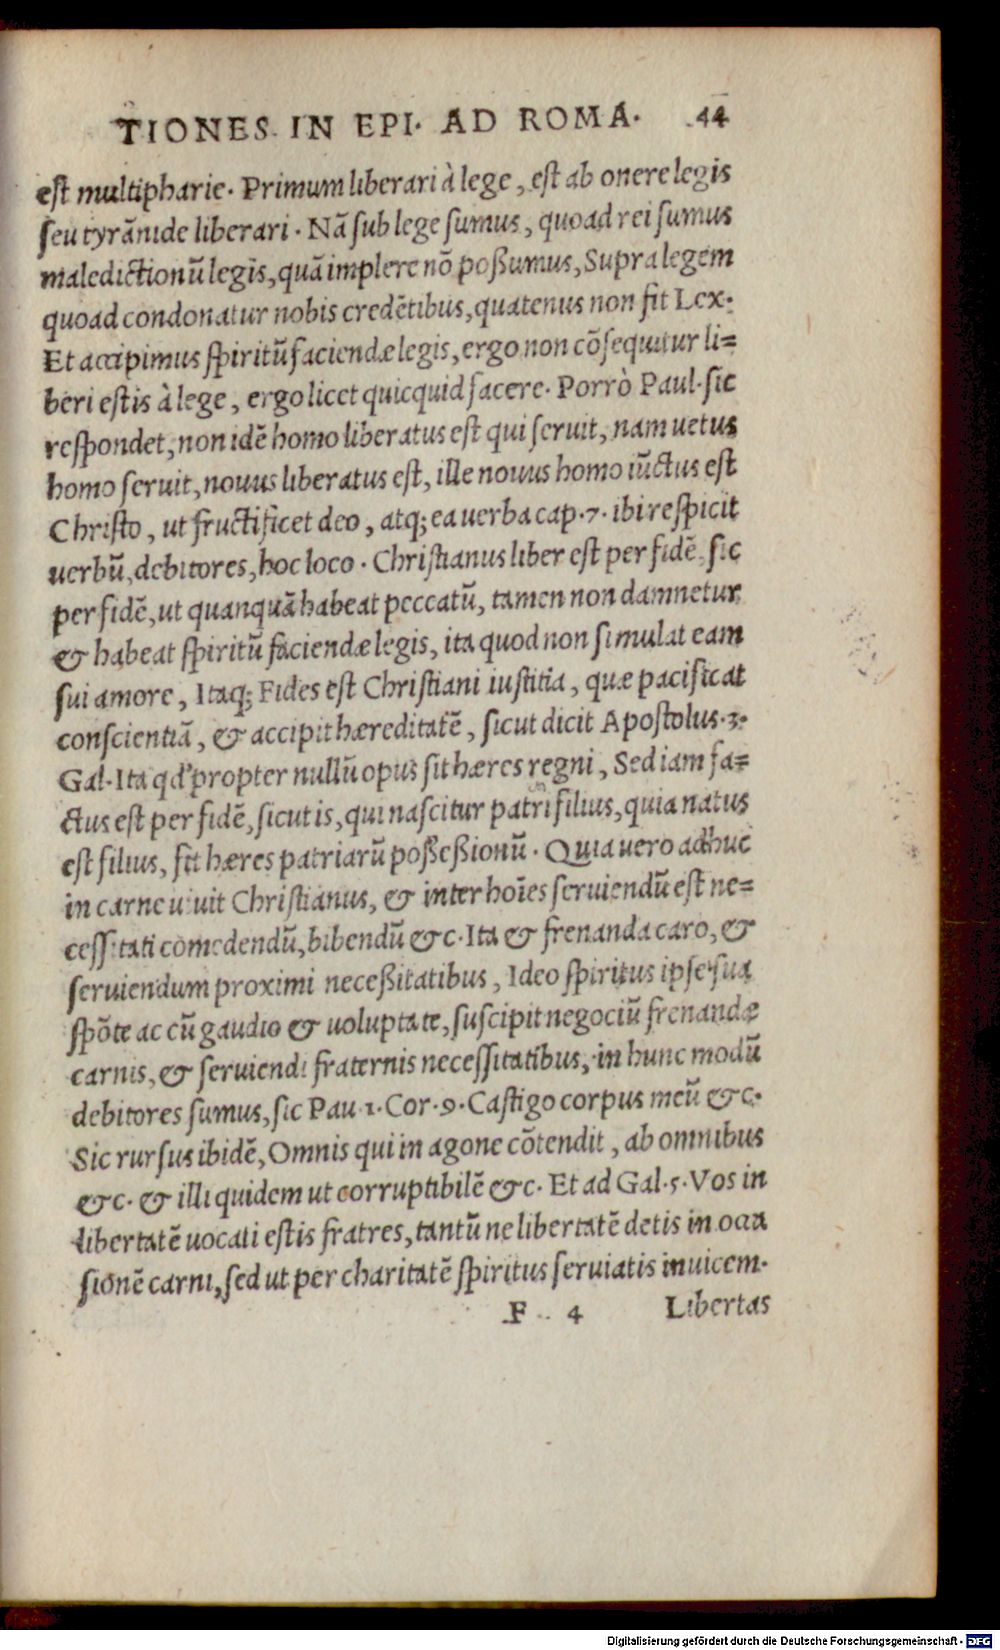 TIONES IN EPI. AD ROMA. 44
est multipharie. Primum liberari à lege, est ab onere legis
seu tyrānide liberari. Nā sub lege sumus, quoad rei sumus
maledictionū legis, quā implere nō poßumus, Supra legem
quoad condonatur nobis credētibus, quatenus non fit Lex.
Et accipimus spiritū faciendæ legis, ergo non cōsequitur li=
beri estis à lege, ergo licet quicquid facere. Porrò Paul. sic
respondet, non idē homo liberatus est qui seruit, nam uetus
homo seruit, nouus liberatus est, ille nouus homo iūctus est
Christo, ut fructificet deo, atq; ea uerba cap. 7. ibi respicit
uerbū, debitores, hoc loco. Christianus liber est per fidē, sic
per fidē, ut quanquā habeat peccatū, tamen non damnetur
& habeat spiritū faciendæ legis, ita quod non simulat eam
sui amore, Itaq; Fides est Christiani iustitia, quæ pacificat
conscientiā, & accipit hæreditatē, sicut dicit Apostolus. 3.
Gal. Ita qd' propter nullū opus sit hæres regni, Sed iam fa=
ctus est per fidē, sicut is, qui nascitur patri filius, quia natus
est filius, fit hæres patriarū poßeßionū. Quia uero adhuc
in carne uiuit Christianus, & inter hoīes seruiendū est ne=
cessitati comedendū, bibendū &c. Ita & frenanda caro, &
seruiendum proximi neceßitatibus, Ideo spiritus ipse sua
spōte ac cū gaudio & uoluptate, suscipit negociū frenandæ
carnis, & seruiendi fraternis necessitatibus, in hunc modū
debitores sumus, sic Pau. 1. Cor. 9. Castigo corpus meū &c.
Sic rursus ibidē, Omnis qui in agone cōtendit, ab omnibus
&c. & illi quidem ut corruptibilē &c. Et ad Gal. 5. Vos in
libertatē uocati estis fratres, tantū ne libertatē detis in occa
sionē carni, sed ut per charitatē spiritus seruiatis inuicem.
F 4 Libertas
Digitalisierung gefördert durch die Deutsche Forschungsgemeinschaft - DFG